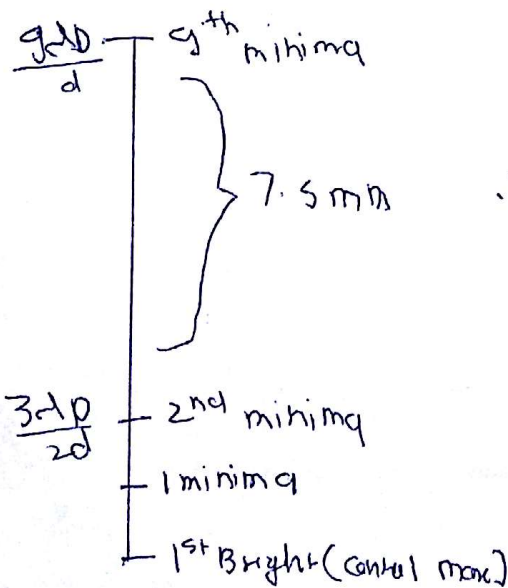 9λD/d 9th minima
7.5 mm
3λD/2d 2nd minima
1 minima
1st Bright (central max)